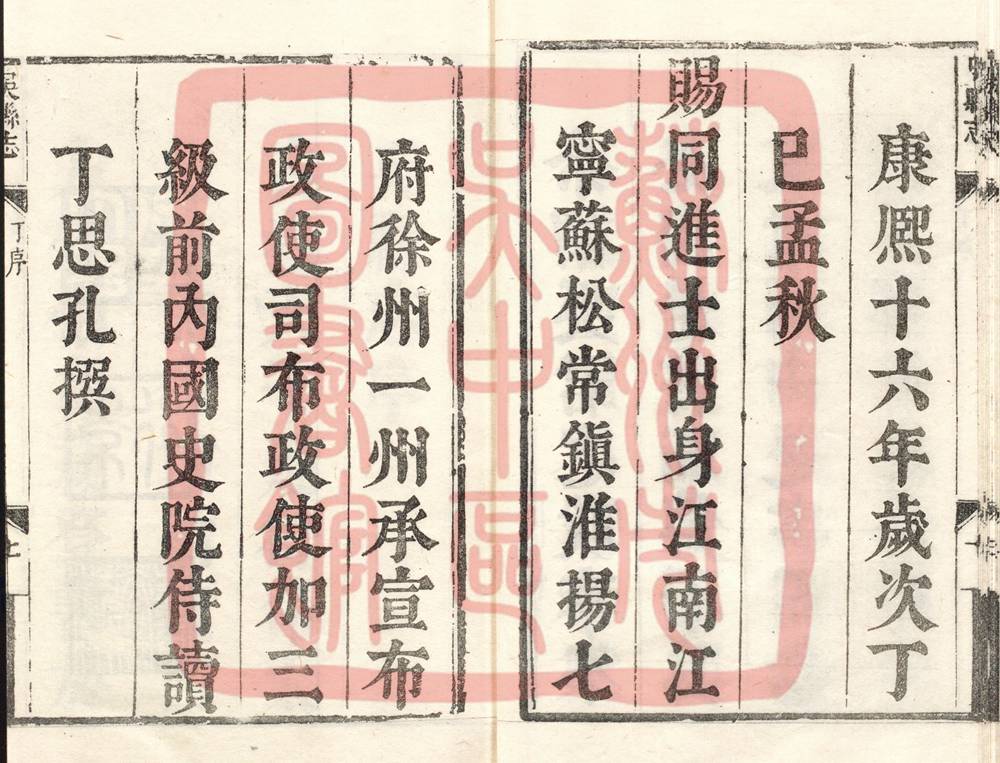 康熈十六年歲次丁
巳孟秋
賜同進士出身江南江
寧蘇松常鎮淮揚七
府徐州一州承宣布
政使司布政使加三
級前內國史院侍讀
丁思孔撰
吳縣志
丁序
七
蘇州市
吳中區
圖書館